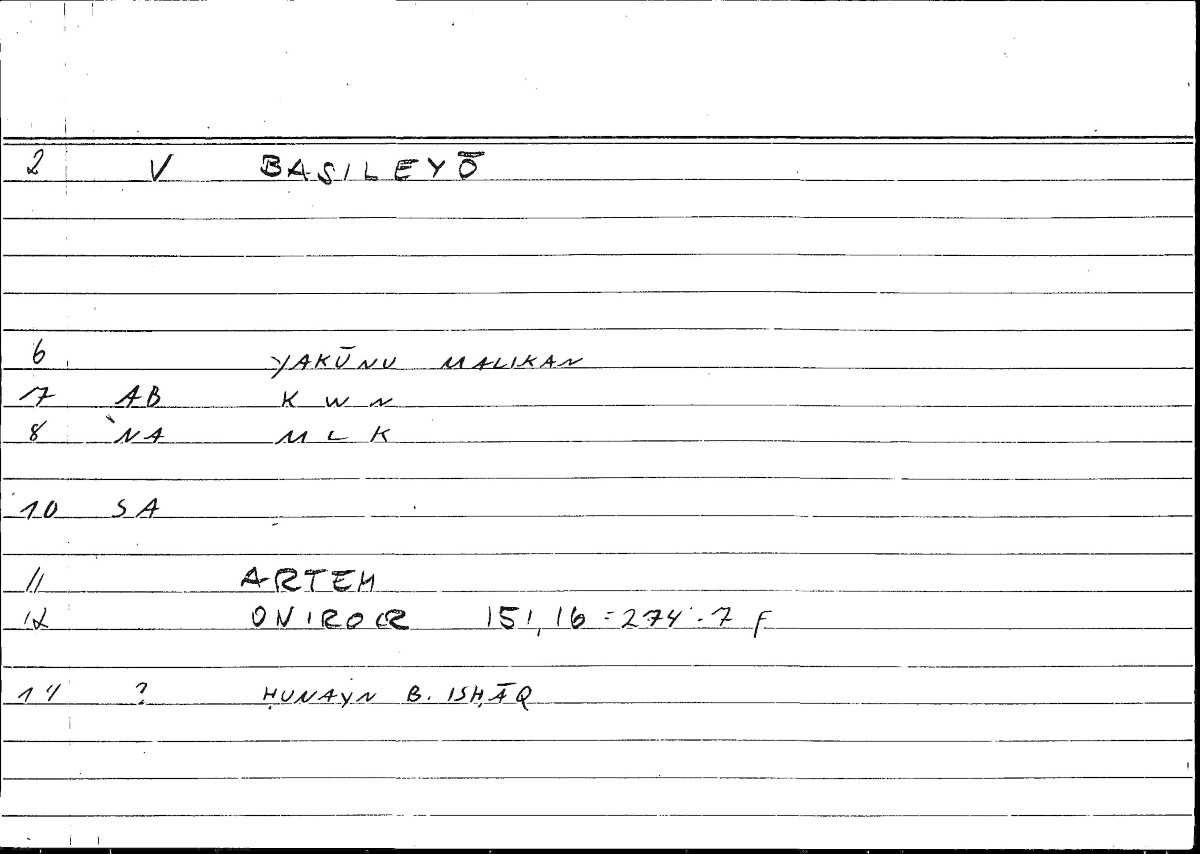 2 V BASILEYŌ
6 YAKŪNU MALIKAN
7 AB K W N
8 NA M L K
10 SA
11 ARTEM
12 ONIROCR 151,16 = 274.7 F
14 ? ḤUNAYN B. ISḤĀQ